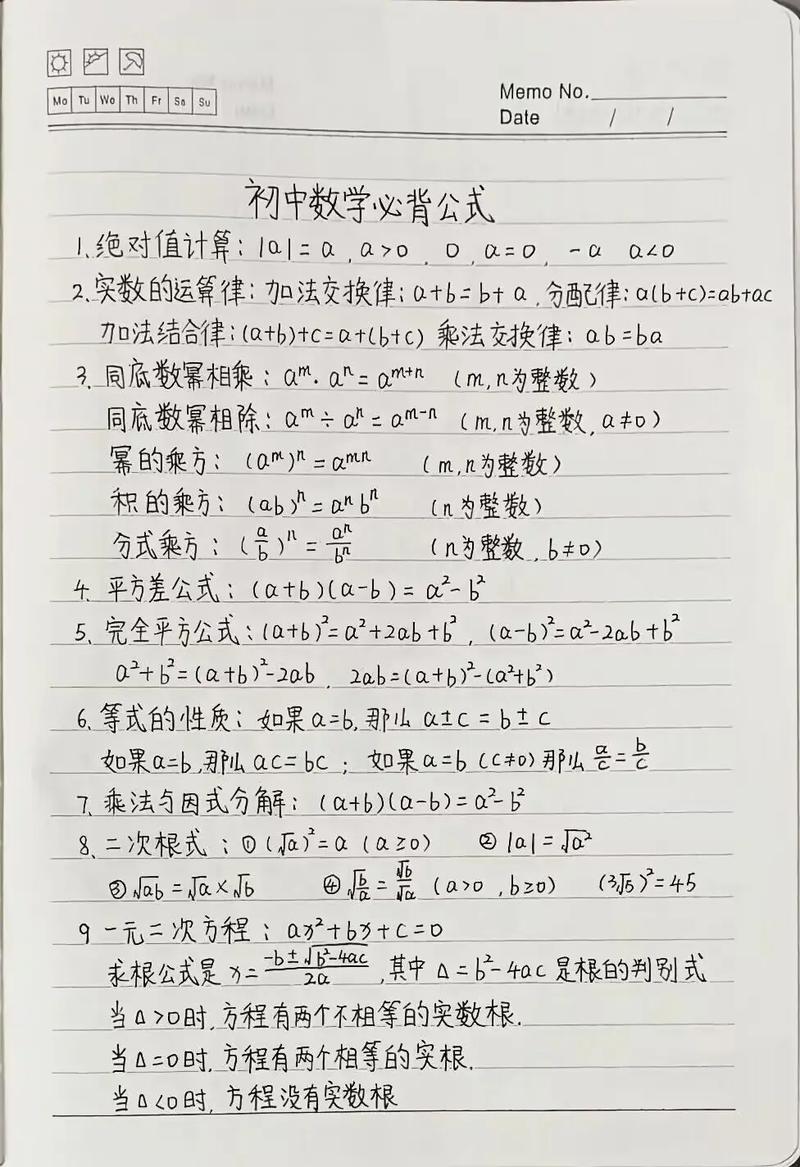 Mo Tu We Th Fr Sa Su
Memo No.
Date / /
初中数学必背公式
1、绝对值计算：|a|=a，a>0，0，a=0，-a a<0
2、实数的运算律：加法交换律：a+b=b+a，分配律：a(b+c)=ab+ac
加法结合律：(a+b)+c=a+(b+c) 乘法交换律：ab=ba
3、同底数幂相乘：aᵐ·aⁿ=aᵐ⁺ⁿ (m,n为整数)
同底数幂相除：aᵐ÷aⁿ=aᵐ⁻ⁿ (m,n为整数，a≠0)
幂的乘方：(aᵐ)ⁿ=aᵐⁿ (m,n为整数)
积的乘方：(ab)ⁿ=aⁿbⁿ (n为整数)
分式乘方：(a/b)ⁿ=aⁿ/bⁿ (n为整数，b≠0)
4、平方差公式：(a+b)(a-b)=a²-b²
5、完全平方公式：(a+b)²=a²+2ab+b²，(a-b)²=a²-2ab+b²
a²+b²=(a+b)²-2ab，2ab=(a+b)²-(a²+b²)
6、等式的性质：如果a=b，那么a±c=b±c
如果a=b，那么ac=bc；如果a=b (c≠0)那么a/c=b/c
7、乘法与因式分解：(a+b)(a-b)=a²-b²
8、二次根式：①(√a)²=a (a≥0) ②|a|=√a²
③√ab=√a×√b ④√b/a=√b/√a (a>0，b≥0) (3√5)²=45
9 一元二次方程：ax²+bx+c=0
求根公式是x=(-b±√b²-4ac)/2a，其中Δ=b²-4ac是根的判别式
当Δ>0时，方程有两个不相等的实数根.
当Δ=0时，方程有两个相等的实根.
当Δ<0时，方程没有实数根